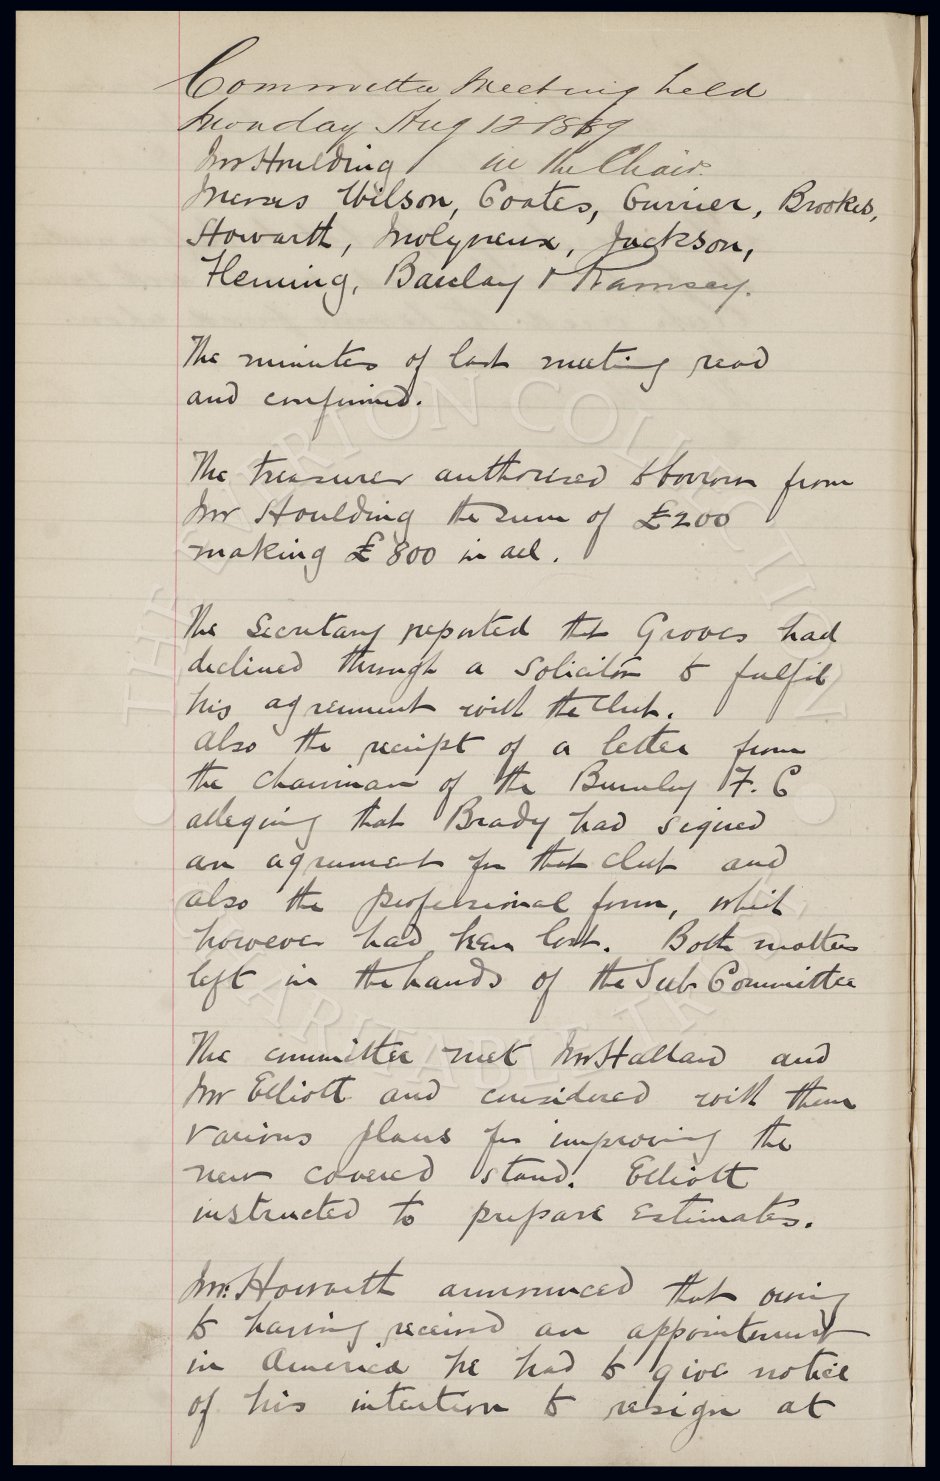 Committee Meeting held
Monday Aug 12 1889
Mr Houlding in the Chair.
Messrs Wilson, Coates, Currier, Brookes,
Howarth, Molyneux, Jackson,
Fleming, Barclay & Ramsey.
The minutes of last meeting read
and confirmed.
The treasurer authorised to borrow from
Mr Houlding the sum of £200
making £800 in all.
The Secretary reported that Groves had
declined through a solicitor to fulfil
his agreement with the Club.
Also the receipt of a letter from
the Chairman of the Burnley F. C
alleging that Brady had signed
an agreement for that club and
also the professional form, which
however had been lost. Both matters
left in the hands of the Sub Committee
The committee met Mr Hallard and
Mr Elliott and considered with them
various plans for improving the
new covered stand. Elliott
instructed to prepare estimates.
Mr. Howarth announced that owing
to having received an appointment
in America he had to give notice
of his intention to resign at
THE EVERTON COLLECTION
CHARITABLE TRUST